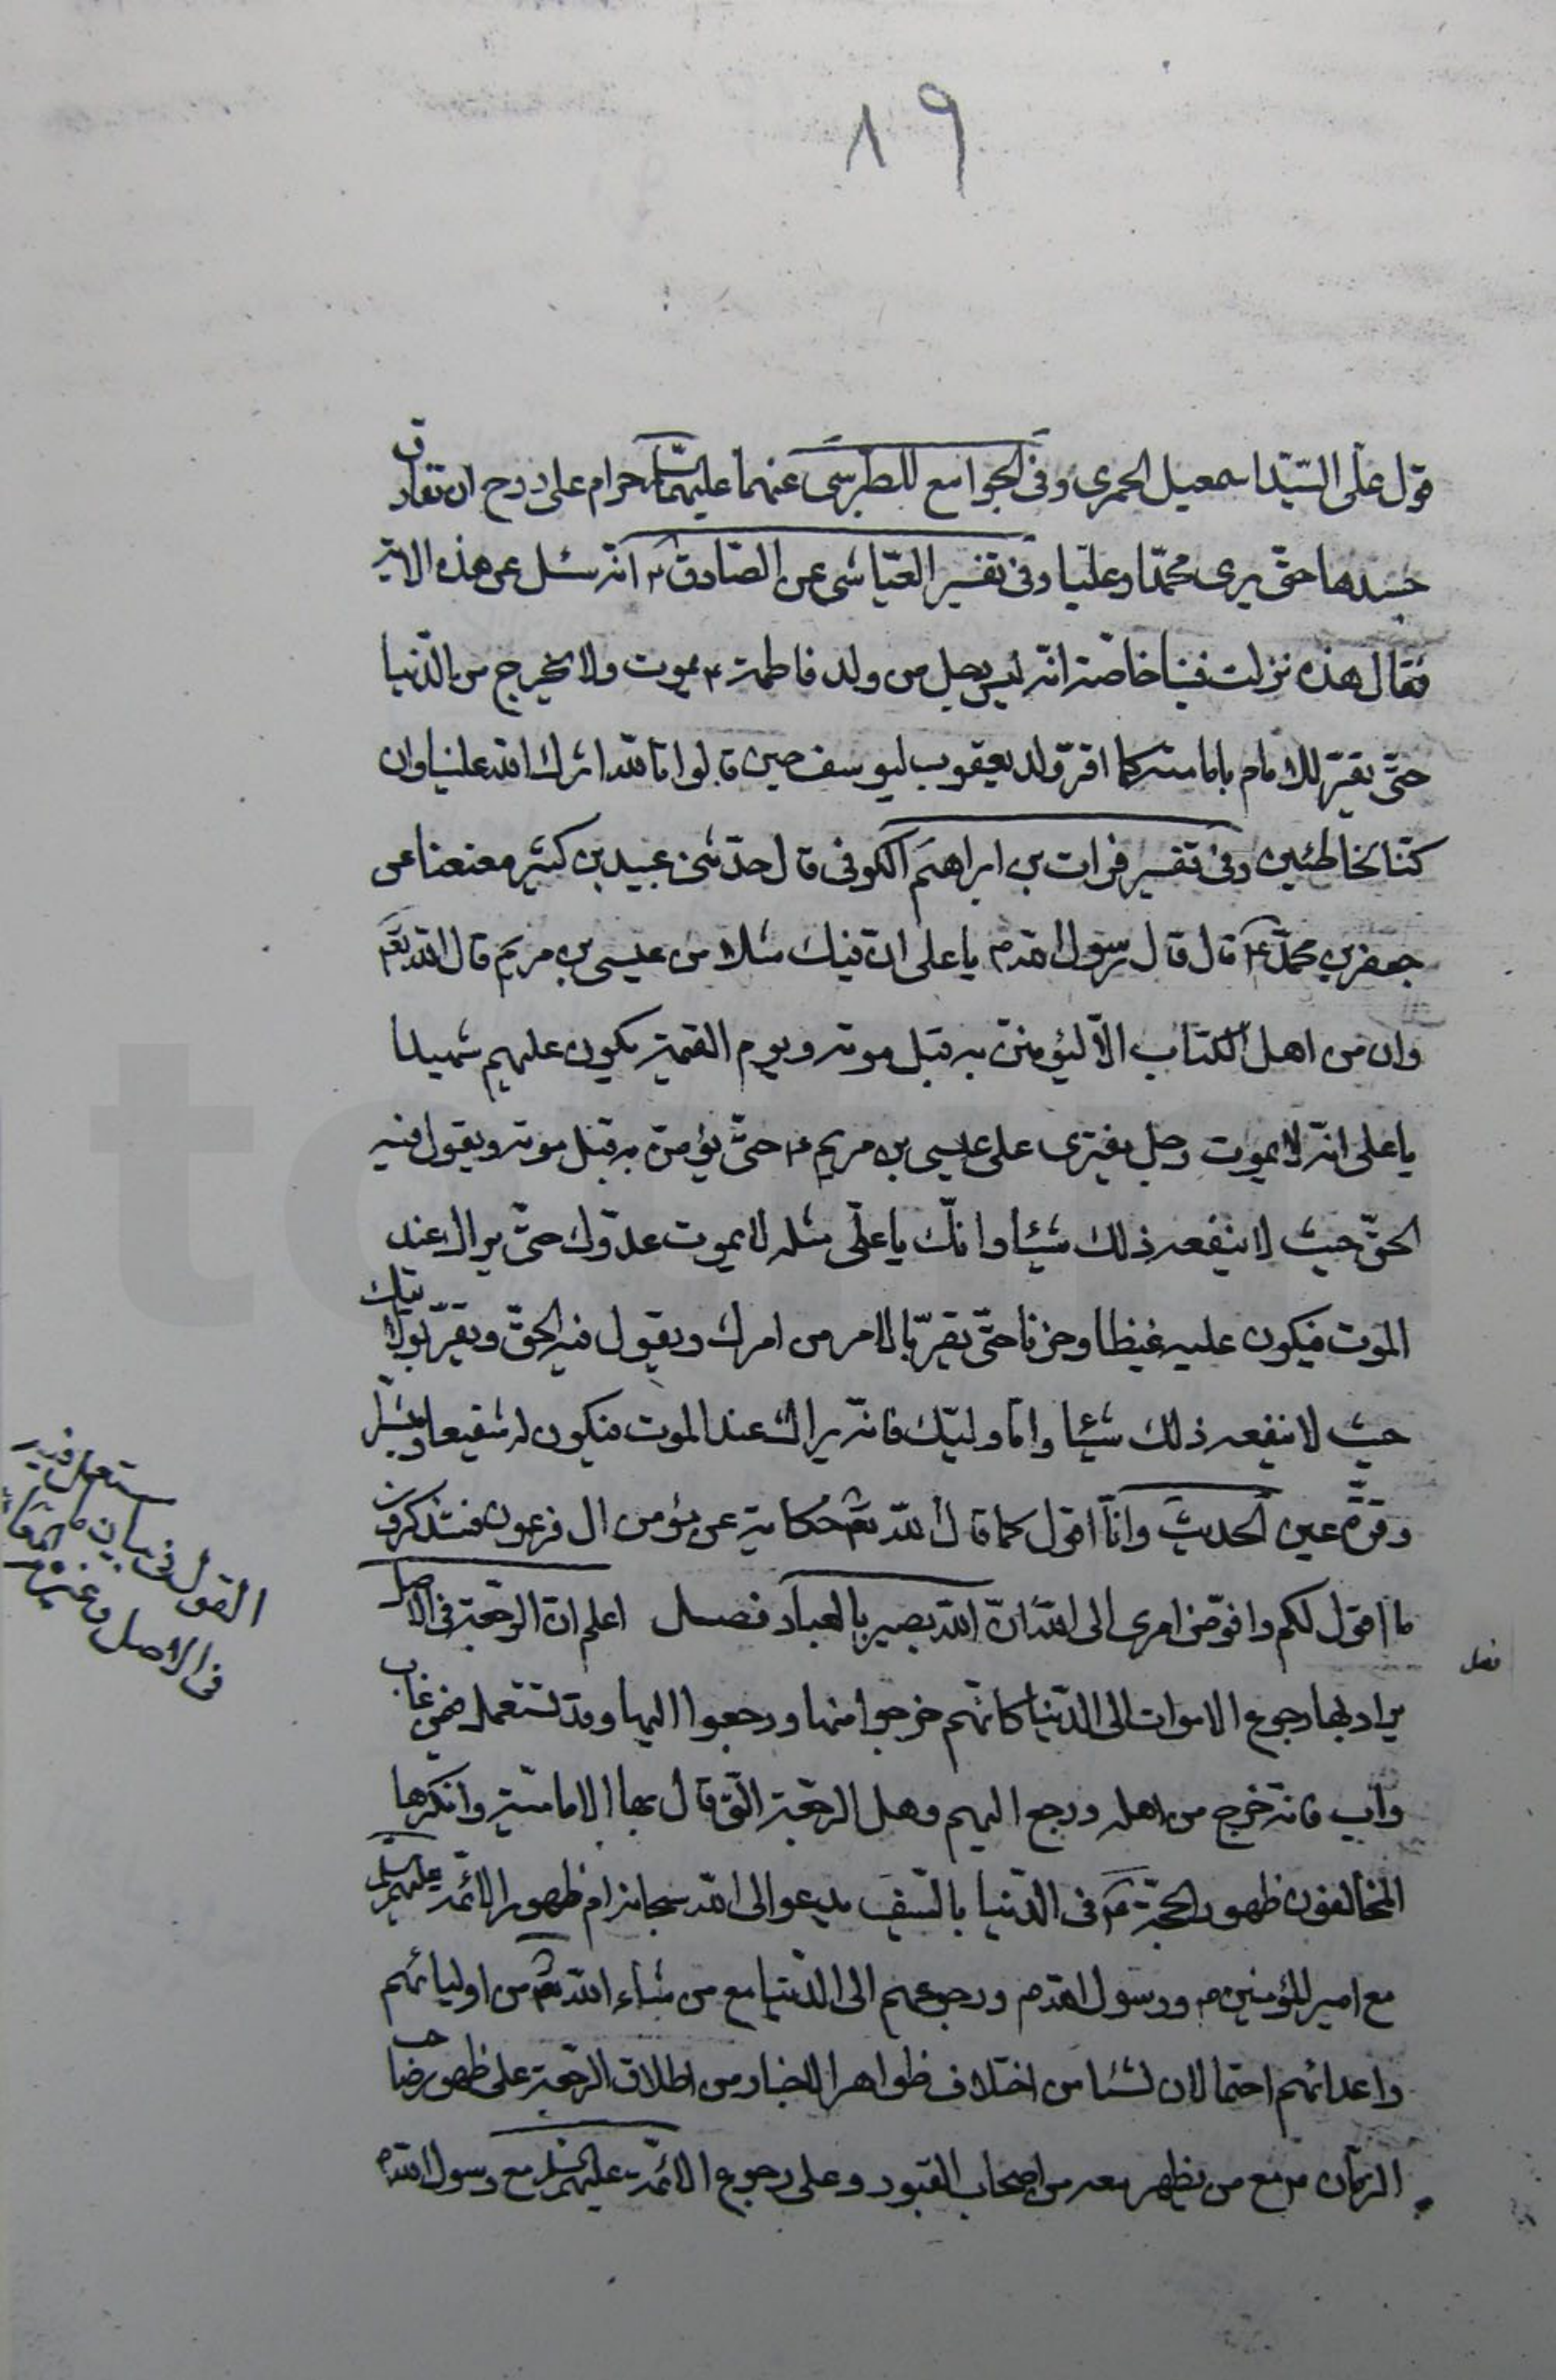 ٨٩
قول على السيد اسمعيل الحمرى وفى الجوامع للطبرسى عنهما عليهما السلام حرام على روح ان تفارق
جسدها حتى يرى محمدا وعليا وفى تفسير العياشى عن الصادق ع انه سئل عن هذه الاية
فقال هذه نزلت فينا خاصة انه ليس رجل من ولد فاطمة ع يموت ولا يخرج من الدنيا
حتى يقر للامام بامامته كما اقر ولد يعقوب ليوسف حين قالوا تالله اثرك الله علينا وان
كنا لخاطئين وفى تفسير فرات بن ابراهيم الكوفى قال حدثنى عبيد بن كثير معنعنا عن
جعفر بن محمد ع قال قال رسول الله ص يا على ان فيك مثلا من عيسى بن مريم قال الله تعالى
وان من اهل الكتاب الا ليؤمنن به قبل موته ويوم القيمة يكون عليهم شهيدا
يا على انه لا يموت رجل يفترى على عيسى بن مريم ع حتى يؤمن به قبل موته ويقول فيه
الحق حيث لا ينفعه ذلك شيئا وانك يا على مثله لا يموت عدوك حتى يراك عند
الموت فيكون عليه غيظا وحزنا حتى يقر بالامر من امرك ويقول فيه الحق ويقر بولايتك
حيث لا ينفعه ذلك شيئا واما وليك فانه يراك عند الموت فيكون له شفيعا ومبشرا
وقرة عين الحديث وانا اقول كما قال الله تعالى حكاية عن مؤمن ال فرعون فستذكرون
ما اقول لكم وافوض امرى الى الله ان الله بصير بالعباد فصل اعلم ان الرجعة فى الاصل
فصل
يراد بها رجوع الاموات الى الدنيا كانهم خرجوا منها ورجعوا اليها وقد تستعمل فيمن غاب
واب فانه خرج من اهله ورجع اليهم وهل الرجعة التى قال بها الامامية وانكرها
المخالفون ظهور الحجة ع فى الدنيا بالسيف يدعو الى الله سبحانه ام ظهور الائمة عليهم السلام
مع امير المؤمنين ع ورسول الله ص ورجوعهم الى الدنيا مع من شاء الله تعالى من اوليائهم
واعدائهم احتمالان نشئا من اختلاف ظواهر الاخبار من اطلاق الرجعة على ظهور صاحب
الزمان ع مع من يظهر معه من اصحاب القبور وعلى رجوع الائمة عليهم السلام مع رسول الله ص
القول فى بيان ما
فى الاصل وغيره